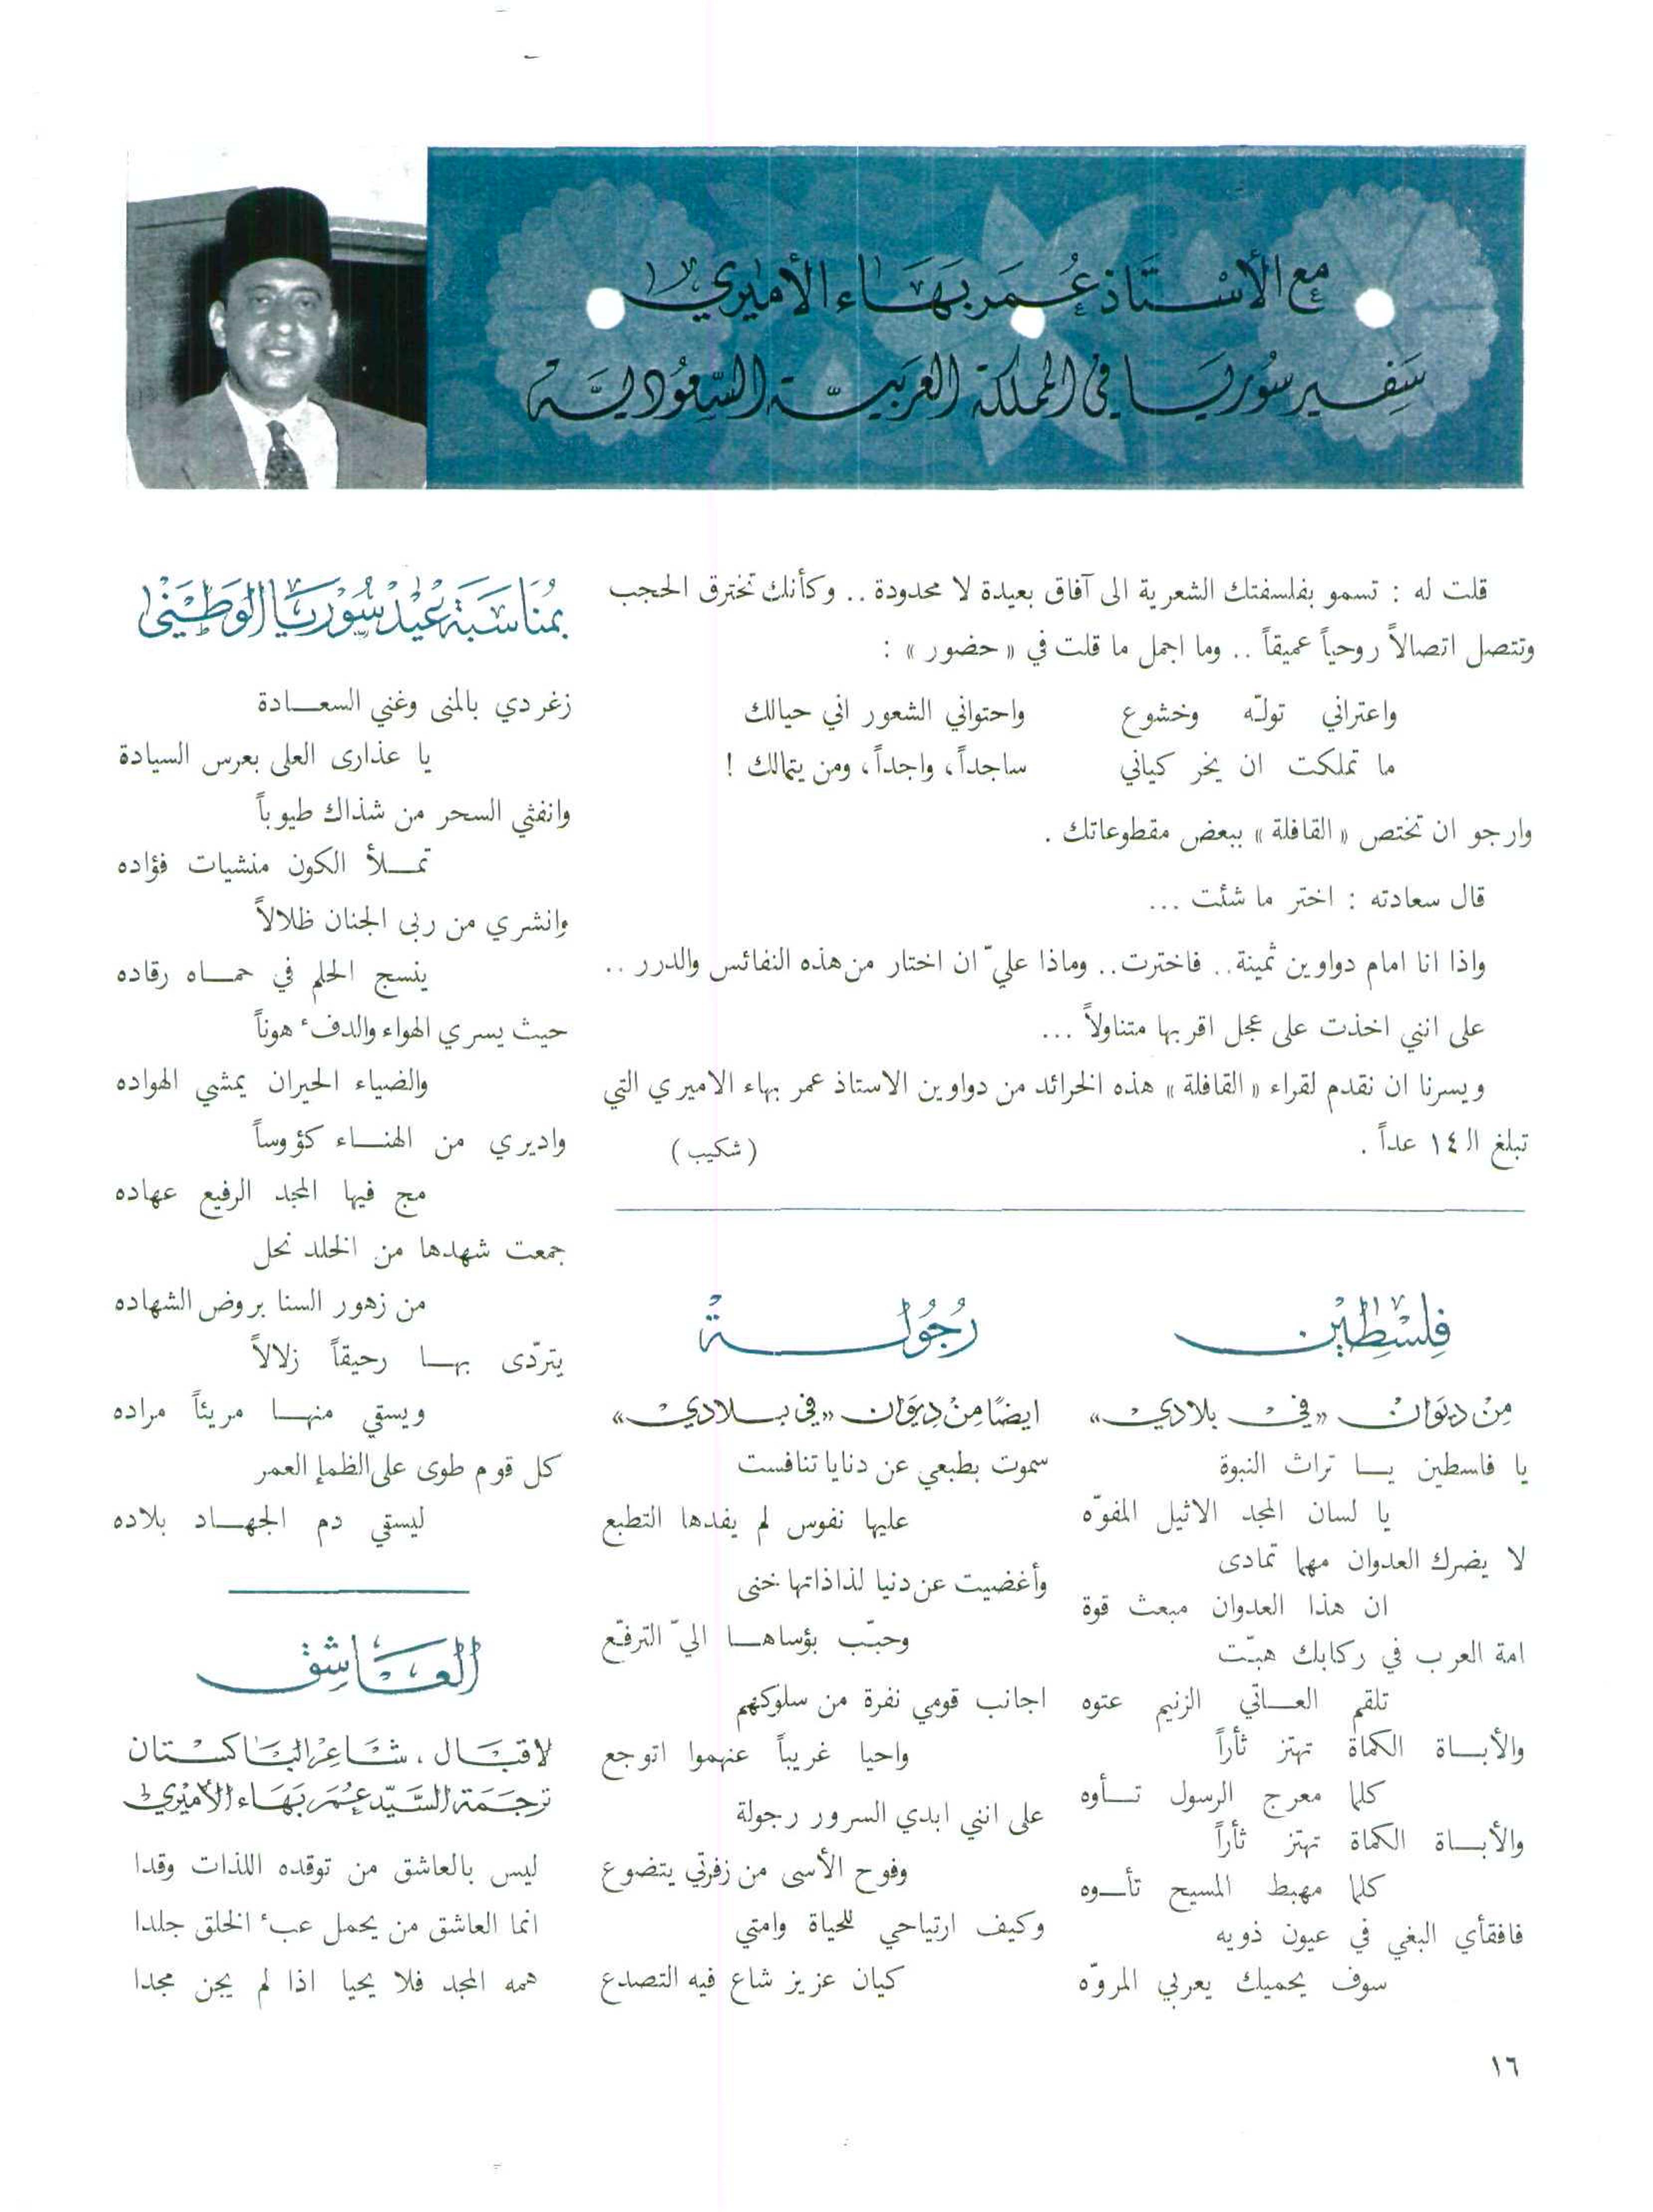 مع الأستاذ عمر بهاء الأميري
سفير سوريا في المملكة العربية السعودية
قلت له : تسمو بفلسفتك الشعرية الى آفاق بعيدة لا محدودة .. وكأنك تخترق الحجب
وتتصل اتصالاً روحياً عميقاً .. وما اجمل ما قلت في « حضور » :
واعتراني تولّه وخشوع واحتواني الشعور اني حيالك
ما تملكت ان يخر كياني ساجداً، واجداً، ومن يتمالك !
وارجو ان تختص « القافلة » ببعض مقطوعاتك .
قال سعادته : اختر ما شئت ...
واذا انا امام دواوين ثمينة .. فاخترت .. وماذا عليّ ان اختار من هذه النفائس والدرر ..
على انني اخذت على عجل اقربها متناولاً ...
ويسرنا ان نقدم لقراء « القافلة » هذه الخرائد من دواوين الاستاذ عمر بهاء الاميري التي
تبلغ الـ ١٤ عداً .
(شكيب)
فلسطين
من ديوان «في بلادي»
يا فلسطين يــا تراث النبوة
يا لسان المجد الاثيل المفوّه
لا يضرك العدوان مهما تمادى
ان هذا العدوان مبعث قوة
امة العرب في ركابك هبّت
تلقم العــاتي الزنيم عتوه
والأبــاة الكماة تهتز ثأراً
كلما معرج الرسول تــأوه
والأبــاة الكماة تهتز ثأراً
كلما مهبط المسيح تأــوه
فافقأي البغي في عيون ذويه
سوف يحميك يعربي المروّه
رجولــة
ايضًا من ديوان «في بلادي»
سموت بطبعي عن دنايا تنافست
عليها نفوس لم يفدها التطبع
وأغضيت عن دنيا لذاذاتها خنى
وحبّب بؤساهــا اليّ الترفّع
اجانب قومي نفرة من سلوكهم
واحيا غريباً عنهموا اتوجع
على انني ابدي السرور رجولة
وفوح الأسى من زفرتي يتضوع
وكيف ارتياحي للحياة وامتي
كيان عزيز شاع فيه التصدع
بمناسبة عيد سوريا الوطني
زغردي بالمنى وغني السعــادة
يا عذارى العلى بعرس السيادة
وانفثي السحر من شذاك طيوباً
تمــلأ الكون منشيات فؤاده
وانشري من ربى الجنان ظلالاً
ينسج الحلم في حمــاه رقاده
حيث يسري الهواء والدفء هوناً
والضياء الحيران يمشي الهواده
واديري من الهنــاء كؤوساً
مج فيها المجد الرفيع عهاده
جمعت شهدها من الخلد نحل
من زهور السنا بروض الشهاده
يتردّى بهــا رحيقاً زلالاً
ويسقي منهــا مريئاً مراده
كل قوم طوى على الظمإ العمر
ليسقي دم الجهــاد بلاده
العــاشق
لاقبــال ، شــاعر الباكستان
ترجمة السيّد عمر بهاء الأميري
ليس بالعاشق من توقده اللذات وقدا
انما العاشق من يحمل عبء الخلق جلدا
همه المجد فلا يحيا اذا لم يجن مجدا
١٦